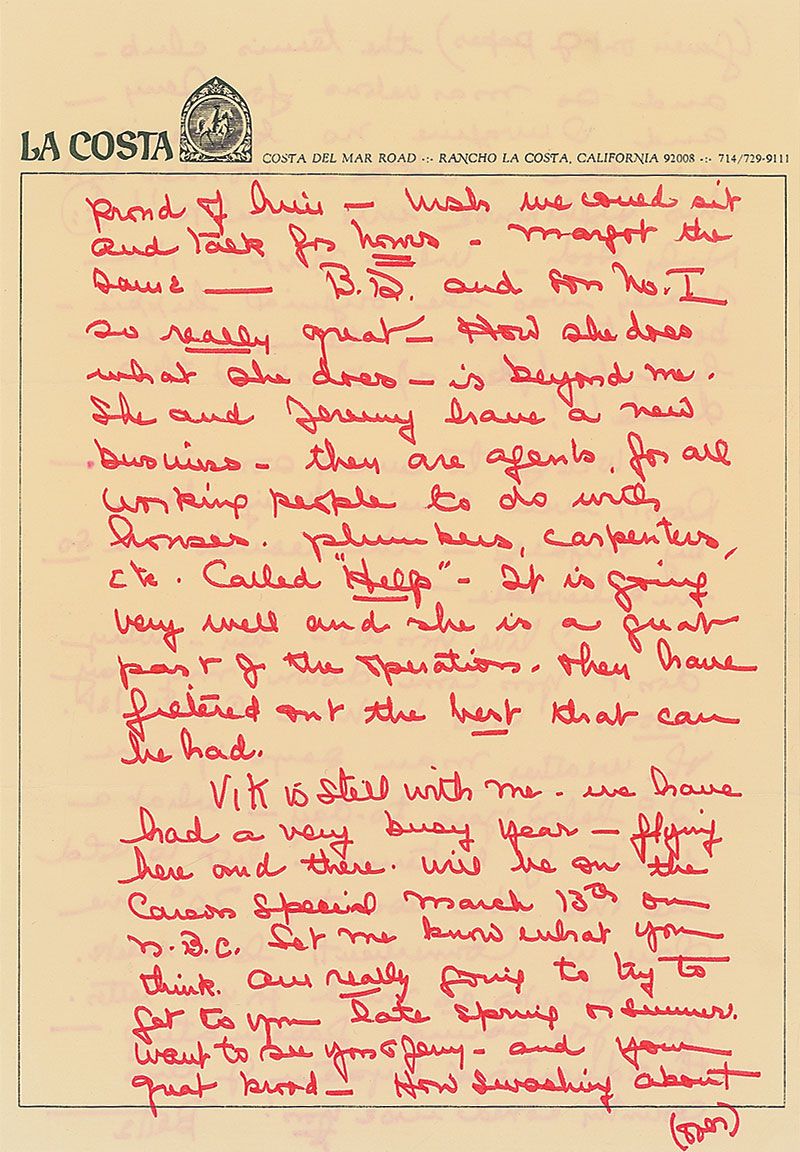 LA COSTA
COSTA DEL MAR ROAD -:- RANCHO LA COSTA, CALIFORNIA 92008 -:- 714/729-9111
proud of him — wish we could sit
and talk for hours - Margot the
same — B.D. and son No. I
so really great — How she does
what she does — is beyond me.
She and Jeremy have a new
business - they are agents for all
working people to do with
houses. plumbers, carpenters,
etc. Called "Help" - It is going
very well and she is a great
part of the operation. they have
filtered out the best that can
be had.
Vik is still with me - we have
had a very busy year — flying
here and there. Will be on the
Carson Special March 13th on
N.B.C. Let me know what you
think. am really going to try to
get to you late spring or summer.
want to see you & - and your
great brood — How smashing about
(over)